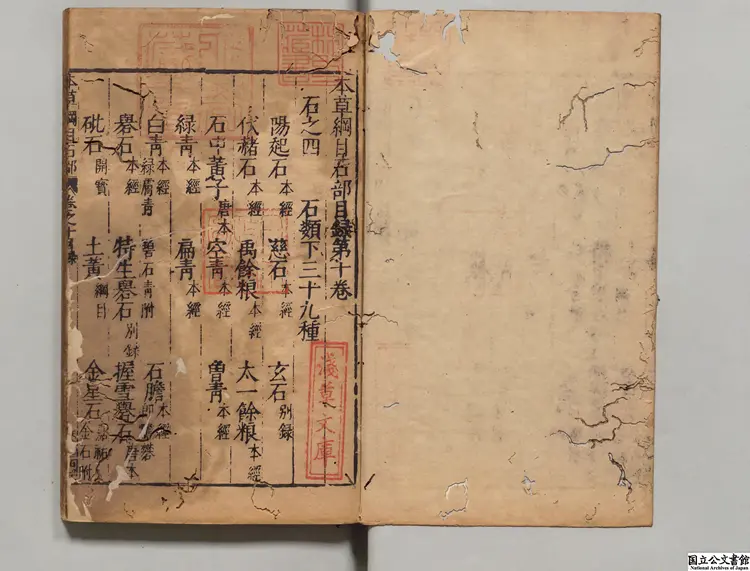 本草綱目石部目録第十卷
石之四 石類下三十九種
陽起石本經 慈石本經 玄石別録
代赭石本經 禹餘粮本經 太一餘粮本經
石中黃子唐本 空青本經 曾青本經
綠青本經 扁青本經
白青本經 綠膚青 碧石青附 石膽本經
礜石本經 特生礜石別録 握雪礜石唐本
砒石開寶 土黃綱目 金星石嘉祐 金石附
淺草文庫
国立公文書館
National Archives of Japan